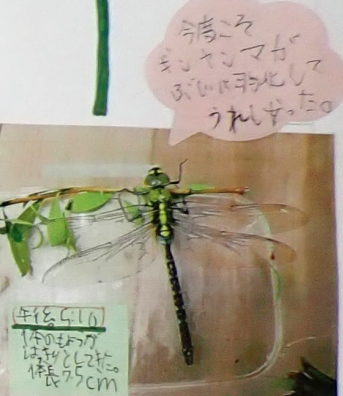 今度こそ
ギンヤンマが
ぶじに羽化して
うれしかった。
午後5:10
体のもようが
はっきりとしてきた。
体長7.5cm